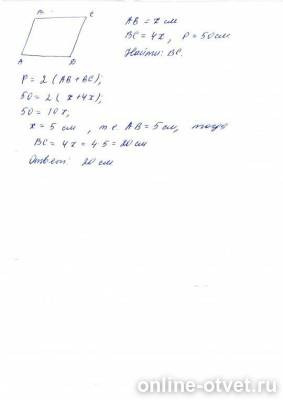 B C
A D
AB = x см
BC = 4x, P = 50 см
Найти: BC.
P = 2 (AB + BC),
50 = 2 (x + 4x),
50 = 10x,
x = 5 см, т.е. AB = 5 см, тогда
BC = 4x = 4·5 = 20 см
Ответ: 20 см
online-otvet.ru